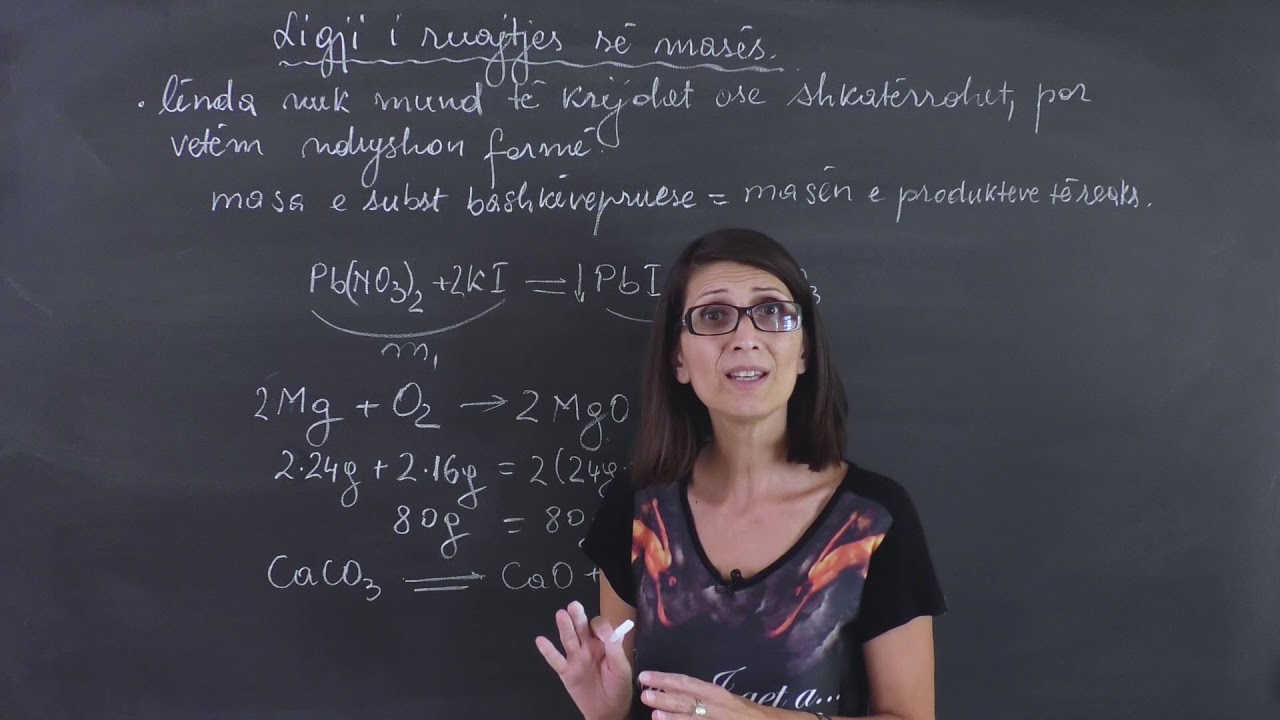 Ligji i ruajtjes së masës.
. lënda nuk mund të krijohet ose shkatërrohet, por
vetëm ndryshon formë.
masa e subst bashkëvepruese = masën e produkteve të reaks.
Pb(NO₃)₂ + 2KI = ↓ PbI ₃
m₁
2Mg + O₂ → 2MgO
2·24g + 2·16g = 2(24g
80g = 80g
CaCO₃ ⇒ CaO +
I get a...